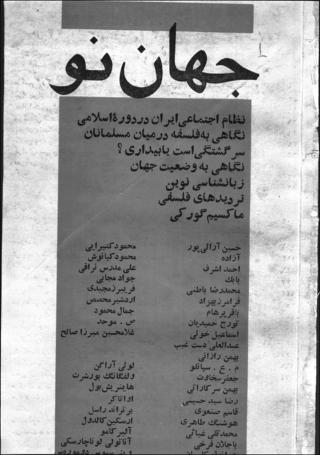 جهان نو
نظام اجتماعی ایران در دورهٔ اسلامی
نگاهی به فلسفه در میان مسلمانان
سرگشتگی است یا بیداری ؟
نگاهی به وضعیت جهان
زبانشناسی نوین
تردیدهای فلسفی
ماکسیم گورکی
حسین آزالی‌پور
آزاده
احمد اشرف
بابك
محمدرضا باطنی
فرامرز بهزاد
باقر پرهام
تورج حمیدیان
اسماعیل خوئی
عبدالعلی دست غیب
بهمن رازانی
م . ع . سپانلو
جعفر سخاوت
رضا سید حسینی
قاسم صنعوی
هوشنگ طاهری
محمدتقی غیاثی
باجلان فرخی
محمود کتیرایی
محمود کیانوش
علی مدرس نراقی
جواد مجابی
فریبرز مجیدی
اردشیر محصص
جمال محمود
ص . موحد
غلامحسین میرزا صالح
لوئی آراگن
ولفگانگ بورشرت
هاینریش بول
برتراند راسل
ارسکین کالدول
آلبر کامو
آناتولی لوناچارسکی